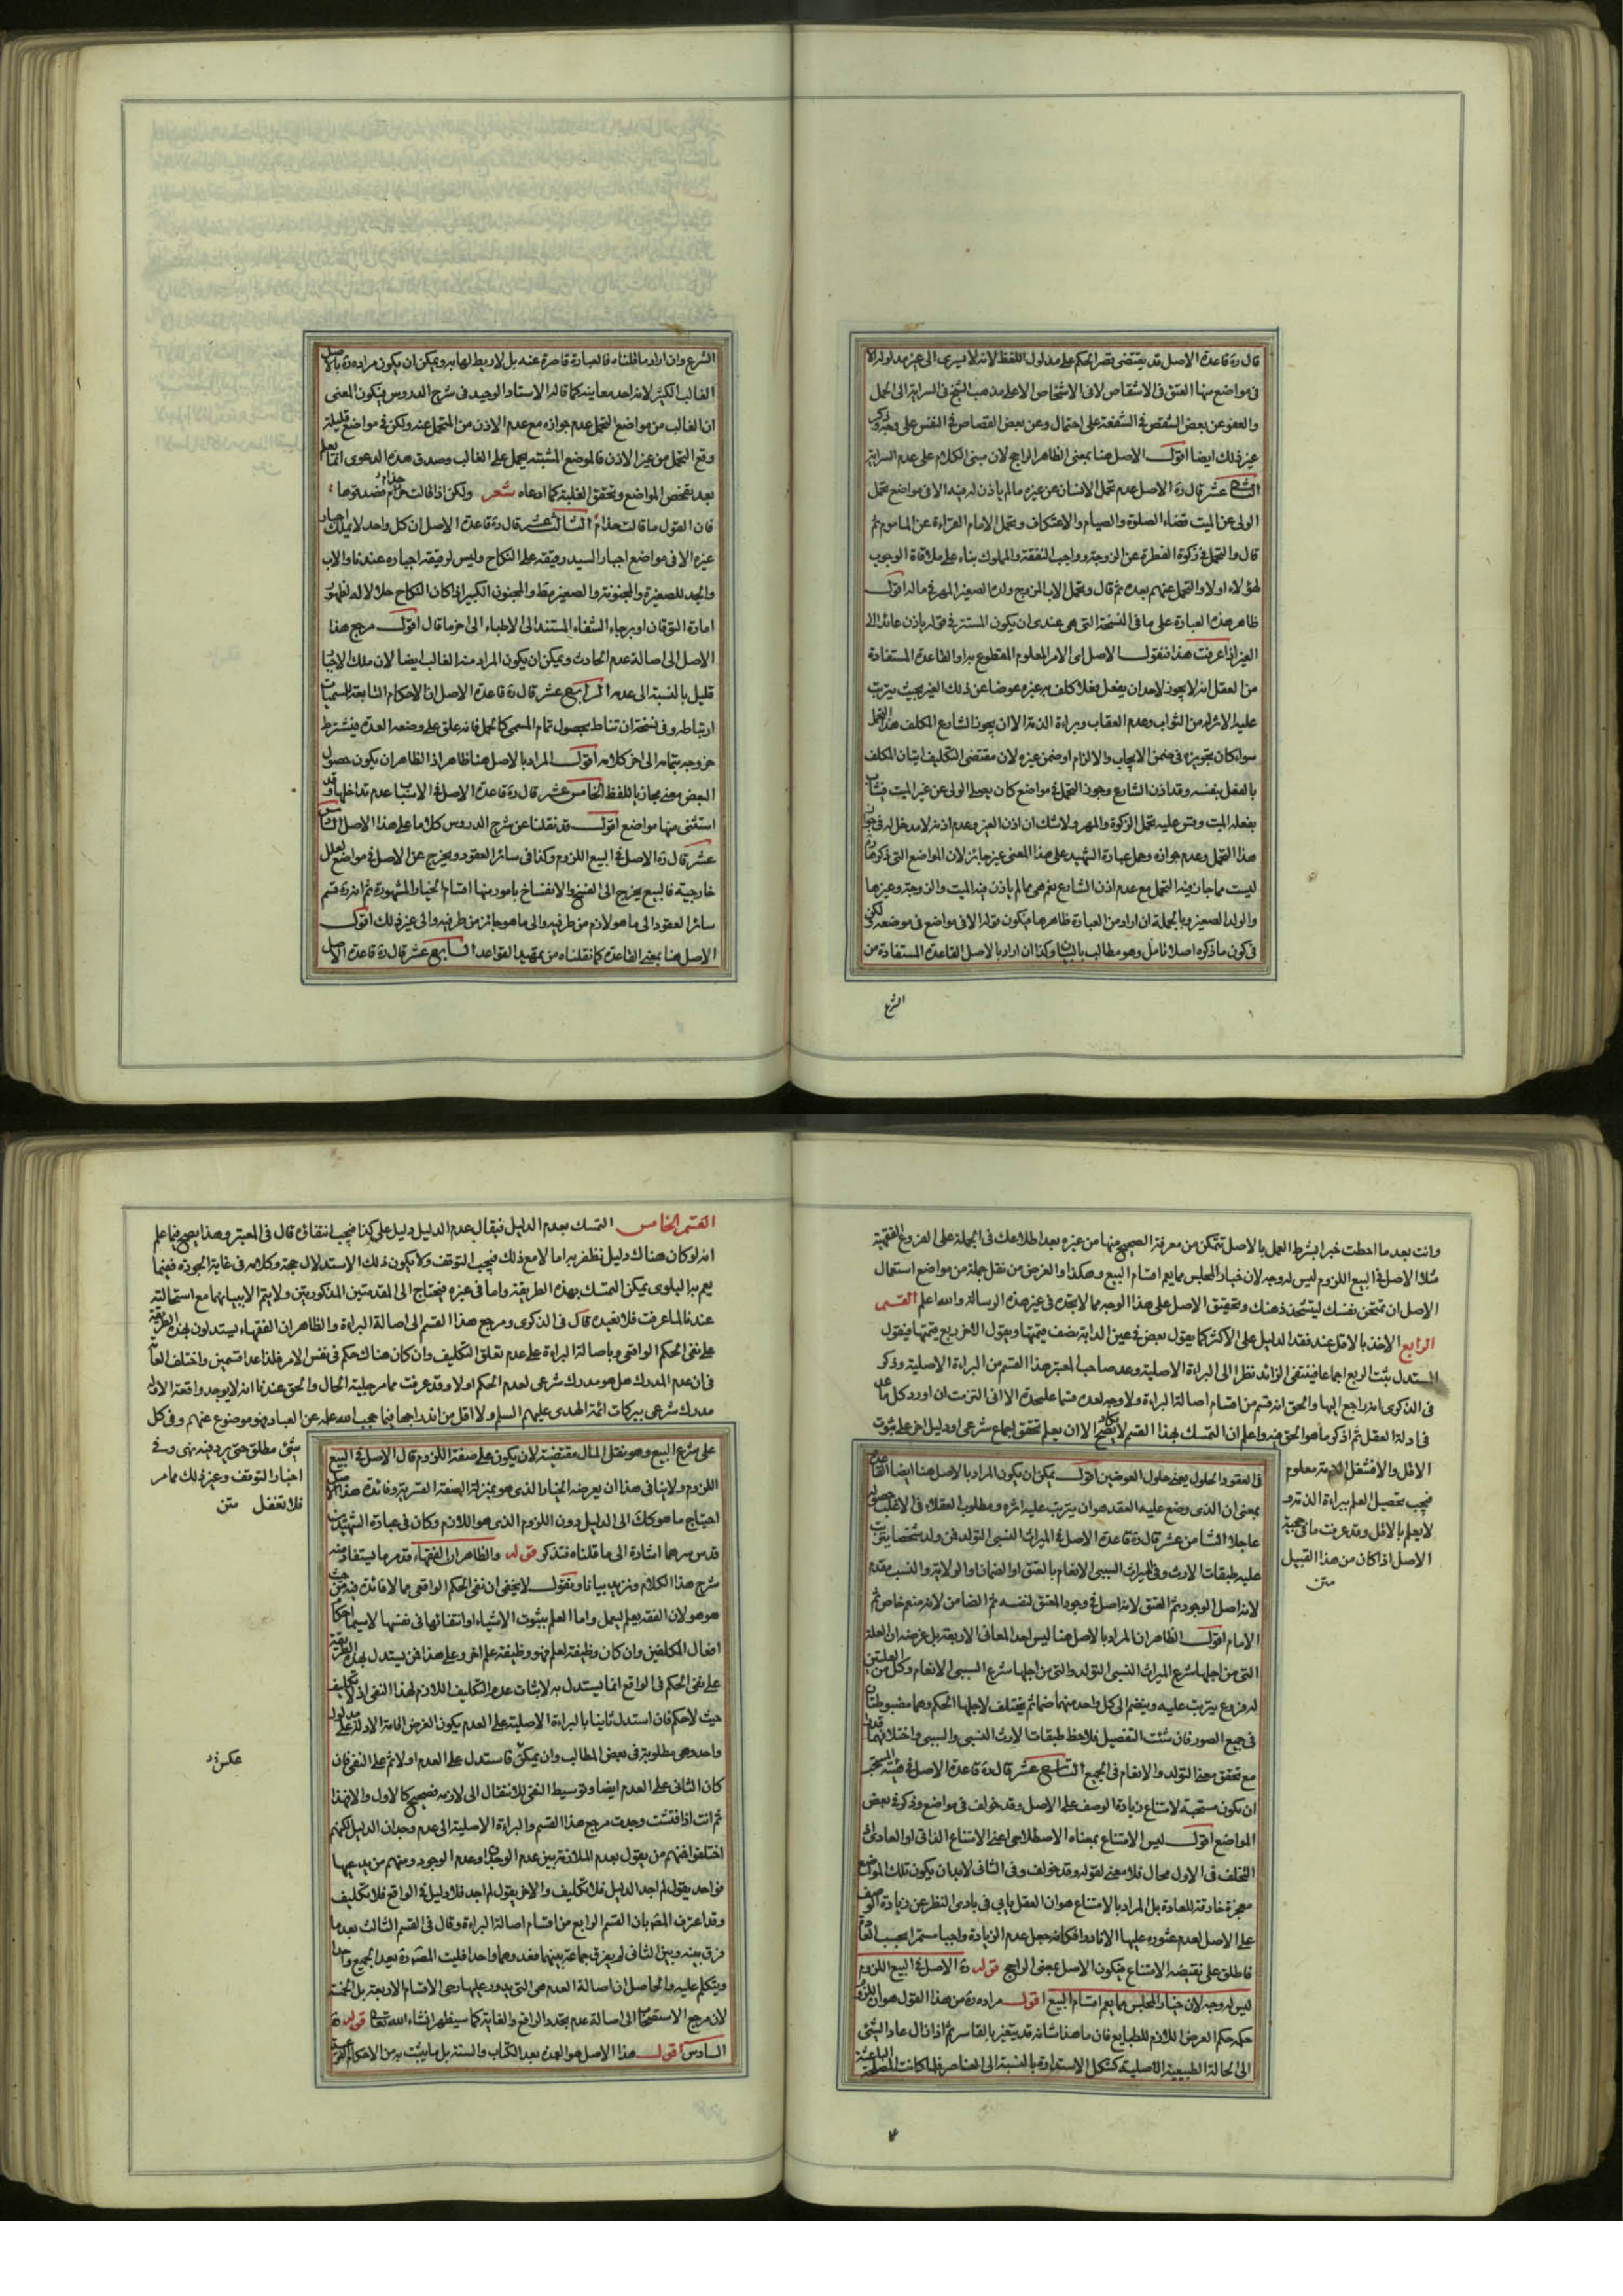 قال ره قاعدة الاصل قد يقتضى قصر الحكم على مدلول اللفظ لانه لا يسرى الى غير مدلوله الا
فى مواضع منها العتق فى الاشقاص لا فى الاشخاص الا على مذهب الشيخ فى السراية الى الحمل
والعفو عن بعض الشقص فى الشفعة على احتمال وعن بعض القصاص فى النفس على وجه وذكر
غير ذلك ايضا اقول الاصل هنا بمعنى الظاهر الراجح لان مبنى الكلام على عدم السراية
عشر قال ره الاصل عدم تحمل الانسان عن غيره ما لم ياذن له فيه الا فى مواضع تحمل
الولى عن الميت قضاء الصلوة والصيام والاعتكاف وتحمل الامام القراءة عن الماموم ثم
قال والتحمل فى زكوة الفطرة عن الزوجة وواجب النفقة والمملوك بناء على ملاقاة الوجوب
لهؤلاء اولا والتحمل عنهم بعده ثم قال وتحمل الاب المزوج ولده الصغير المهر فى ماله اقول
ظاهر هذه العبارة على ما فى النسخة التى هى عندى ان يكون المستتر فى قوله ياذن عائدا الى
الغير اذا عرفت هذا فنقول الاصل اى الامر المعلوم المقطوع به او القاعدة المستفادة
من العقل انه لا يجوز لاحد ان يفعل فعلا كلف به غيره عوضا عن ذلك الغير بحيث يترتب
عليه الاثر له من الثواب وعدم العقاب وبراءة الذمة الا ان يجوز الشارع المكلف هذا التحمل
سواء كان تجويزه فى ضمن الايجاب والالزام او ضمن غيره لان مقتضى التكليف اتيان المكلف
بالفعل بنفسه وقد اذن الشارع وجوز التحمل فى مواضع كان يصلى الولى عن غير الميت فيثاب
بفعله الميت وقس عليه تحمل الزكوة والمهر ولا شك ان اذن الغير وعدم اذنه لا مدخل له فى جواز
هذا التحمل وعدم جوازه وحمل عبارة الشهيد على هذا المعنى غير جائز لان المواضع التى ذكرها
ليست مما جاز فيه التحمل مع عدم اذن الشارع نعم هى مما لم ياذن فيه الميت والزوجة وغيرها
والولد الصغير وبالجملة ان اراد من العبارة ظاهرها فيكون قوله الا فى مواضع فى موضعه لكن
فى كون ما ذكره اصلا تامل وهو مطالب بالبيان وكذا ان اراد بالاصل القاعدة المستفادة من
الشرع
الشرع وان اراد ما قلناه فالعبارة قاصرة عنه بل لا ربط لها به ويمكن ان يكون مراده ره بالاصل
الغالب الكثير لانه احد معانيه كما قاله الاستاد الوحيد فى شرح الدروس فيكون المعنى
ان الغالب من مواضع التحمل عدم جوازه مع عدم الاذن من المتحمل عنه ولكن فى مواضع قليلة
وقع التحمل من غير الاذن فالموضع المشتبه يحمل على الغالب وصدق هذه الدعوى انما يعلم
بعد تفحص المواضع وتحقق الغلبة كما ادعاه شعر ولكن اذا قالت حذام فصدقوها
فان القول ما قالت حذام الثالث عشر قال ره قاعدة الاصل ان كل واحد لا يملك اجبار
غيره الا فى مواضع اجبار السيد رقيقه على النكاح وليس لرقيقه اجباره عندنا والاب
والجد للصغيرة والمجنونة والصغير مط والمجنون الكبير اذا كان النكاح صلاحا له لظهور
امارة التوقان او برجاء الشفاء المستند الى الاطباء الى اخر ما قال اقول مرجع هذا
الاصل الى اصالة عدم الحادث ويمكن ان يكون المراد منه الغالب ايضا لان ملك الاجبار
قليل بالنسبة الى عدمه الرابع عشر قال ره قاعدة الاصل ان الاحكام التابعة لمسميات
ارتباطه وفى نسخة ان تناط بحصول تمام المسمى كالحمل فانه علق على وضعه العدة فيشترط
خروجه بتمامه الى اخر كلامه اقول المراد بالاصل هنا ظاهر اذ الظاهر ان يكون حصول
البعض معنى مجازيا للفظ الخامس عشر قال ره قاعدة الاصل فى الاسباب عدم تداخلها وقد
استثنى منها مواضع اقول قد نقلنا عن شرح الدروس كلاما على هذا الاصل السادس
عشر قال ره الاصل فى البيع اللزوم وكذا فى سائر العقود ويخرج عن الاصل فى مواضع لعلل
خارجية فالبيع يخرج الى الفسخ والانفساخ بامور منها اقسام الخيار المشهورة ثم انه ره قسم
سائر العقود الى ما هو لازم من طرفيه والى ما هو جائز من طرفيه والى غير ذلك اقول
الاصل هنا بمعنى القاعدة كما نقلناه من تمهيد القواعد السابع عشر قال ره قاعدة الاصل
وانت بعد ما احطت خبرا بشرط العمل بالاصل تتمكن من معرفة الصحيح منها من غيره بعد اطلاعك فى الجملة على الفروع الفقهية
مثلا الاصل فى البيع اللزوم ليس له وجه لان خيار المجلس مما يعم اقسام البيع وهكذا والغرض من نقل جملة من مواضع استعمال
الاصل ان تمتحن نفسك ليتشحذ ذهنك وتحقيق الاصل على هذا الوجه مما لا تجده فى غير هذه الرسالة والله اعلم القسم
الرابع الاخذ بالاقل عند فقد الدليل على الاكثر كما يقول بعض فى عين الدابة نصف قيمتها ويقول الاخر ربع قيمتها فيقول
المستدل يثبت الربع اجماعا فينتفى الزائد نظرا الى البراءة الاصلية وعد صاحب المعتبر هذا القسم من البراءة الاصلية وذكر
فى الذكرى انه راجع اليها والحق انه قسم من اقسام اصالة البراءة ولا وجه لعده قسما عليحدة الا انى التزمت ان اورد كل ما عد
فى ادلة العقل ثم اذكر ما هو الحق فيه واعلم ان التمسك بهذا القسم لا يكاد يصح الا ان يعلم تحقق اجماع شرعى او دليل اخر على ثبوت
الاقل والا فشغل الذمة معلوم
فيجب تحصيل العلم ببراءة الذمة و
لا يعلم بالاقل وقد عرفت ما فى حجية
الاصل اذا كان من هذا القبيل
متن
فى العقود الحلول يعنى حلول العوضين اقول يمكن ان يكون المراد بالاصل هنا ايضا القاعدة
بمعنى ان الذى وضع عليه العقد هو ان يترتب عليه اثره ومطلوب العقلاء فى الاغلب حصول
عاجلا الثامن عشر قال ره قاعدة الاصل فى الميراث النسبى التولد فمن ولد شخصا يترتب
عليه طبقات الارث وفى الميراث السببى الانعام بالعتق او الضمان او الولاية والنسب مقدم
لانه اصل الوجود ثم العتق لانه اصل فى وجود المعتق لنفسه ثم الضامن لانه منعم خاص ثم
الامام اقول الظاهر ان المراد بالاصل هنا ليس احد المعانى الاربعة بل غرضه ان العلة
التى من اجلها شرع الميراث النسبى التولد والتى من اجلها شرع السببى الانعام وكل من العلتين
له فروع يترتب عليه وينضم الى كل واحد منهما ضمائم يختلف لاجلها الحكم وهما مضبوطتان
فى جميع الصور فان شئت التفصيل فلاحظ طبقات الارث النسبى والسببى واختلافهما
مع تحقق معنى التولد والانعام فى الجميع التاسع عشر قال ره قاعدة الاصل فى هيئة المستحب
ان يكون مستحبة لامتناع زيادة الوصف على الاصل وقد خولف فى مواضع وذكر فى بعض
المواضع اقول ليس الامتناع بمعناه الاصطلاحى اعنى الامتناع الذاتى او العادى لان
التخلف فى الاول محال فلا معنى لقوله وقد خولف وفى الثانى لابد ان يكون تلك المواضع
معجزة خارقة للعادة بل المراد بالامتناع هو ان العقل يابى فى بادى النظر عن زيادة الوصف
على الاصل لعدم عثوره عليها الا نادرا فكانه جعل عدم الزيادة واجبا مستمرا بحسب العادة
فاطلق على نقيضه الامتناع فيكون الاصل بمعنى الراجح قوله ره الاصل فى البيع اللزوم
ليس له وجه لان خيار المجلس مما يعم اقسام البيع اقول مراده ره من هذا القول هو ان اللزوم
حكمه حكم العرض اللازم للطبايع فان ما هذا شانه قد يتغير بالقاسر ثم اذا زال عاد الشئ
الى الحالة الطبيعية الاصلية كشكل الاستدارة بالنسبة الى العناصر فلما كانت المصلحة الباعثة
القسم الخامس التمسك بعدم الدليل فيقال عدم الدليل دليل على كذا فيجب انتفاؤه قال فى المعتبر وهذا يصح فيما علم
انه لو كان هناك دليل لظفر به اما لا مع ذلك فيجب التوقف ولا يكون ذلك الاستدلال حجة وكلامه فى غاية الجودة ففيما
يعم به البلوى يمكن التمسك بهذه الطريقة واما فى غيره فيحتاج الى المقدمتين المذكورتين ولا يتم الا ببيانهما مع استحالته
عندنا لما عرفت فلا نعيده قال فى الذكرى ومرجع هذا القسم الى اصالة البراءة والظاهر ان الفقهاء يستدلون بهذه الطريقة
على نفى الحكم الواقعى وباصالة البراءة على عدم تعلق التكليف وان كان هناك حكم فى نفس الامر فلذا عدا قسمين واختلف العامة
فى ان عدم المدرك هل هو مدرك شرعى لعدم الحكم اولا وقد عرفت مما مر جلية الحال والحق عندنا انه لا يوجد واقعة الا وله
مدرك شرعى ببركات ائمة الهدى عليهم السلم ولا اقل من اندراجها فيما حجب الله علمه عن العباد فهو موضوع عنهم وفى كل
شئ مطلق حتى يرد فيه نهى وفى
اخبار التوقف وغير ذلك مما مر
فلا تغفل متن
على شرع البيع وهو نقل المال مقتضية لان يكون على صفة اللزوم قال الاصل فى البيع
اللزوم ولا ينافى هذا ان يعرضه الخيار الذى هو بمنزلة الصفة القسرية وفائدة هذا الاصل
احتياج ما هو كك الى الدليل دون اللزوم الذى هو اللازم وكان فى عبارة الشهيدين
قدس سرهما اشارة الى ما قلناه فتذكر قوله والظاهر ان الفقهاء قد مر ما يستفاد منه
شرح هذا الكلام ونزيد بيانا ونقول لا يخفى ان نفى الحكم الواقعى مما لا فائدة فيه من حيث
هو هو لان الفقه يعلم ليعمل واما العلم بثبوت الاشياء او انتفائها فى نفسها لاسيما احكام
افعال المكلفين وان كان وظيفة لعلم فهو وظيفة علم اخر وعلى هذا فمن يستدل بهذه الطريقة
على نفى الحكم فى الواقع انما يستدل به لاثبات عدم التكليف اللازم لهذا النفى اذ لا تكليف
حيث لا حكم فان استدل ثانيا بالبراءة الاصلية على العدم يكون الغرض اقامة الادلة على مدلول
واحد وهى مطلوبة فى بعض المطالب وان يمكن فاستدل على العدم اولا ثم على النفى فان
كان الثانى على العدم ايضا وتوسيط النفى للانتقال الى لازمه فصحيح كالاول والا فهذا
ثم انت اذا فتشت وجدت مرجع هذا القسم والبراءة الاصلية الى عدم وجدان الدليل لكنهم
اختلفوا فمنهم من يقول بعدم الملازمة بين عدم الوجدان وعدم الوجود ومنهم من يدعيها
فواحد يقول لم اجد الدليل فلا تكليف والاخر يقول لم اجد فلا دليل فى الواقع فلا تكليف
وقد اعترف المص بان القسم الرابع من اقسام اصالة البراءة وقال فى القسم الثالث بعد ما
فرق بينه وبين الثانى لم يفرق جماعة بينهما فعدوهما واحدا فليت المص ره يعد الجميع واحدا
ويتكلم عليه والحاصل ان اصالة العدم هى التى يدور عليها رحى الاقسام الاربعة بل الخمسة
لان مرجع الاستصحاب الى اصالة عدم تجدد الرافع والغاية كما سيظهر انشاء الله تعالى قوله ره
السادس اقول هذا الاصل هو العمدة بعد الكتاب والسنة بل ما يثبت به من الاحكام